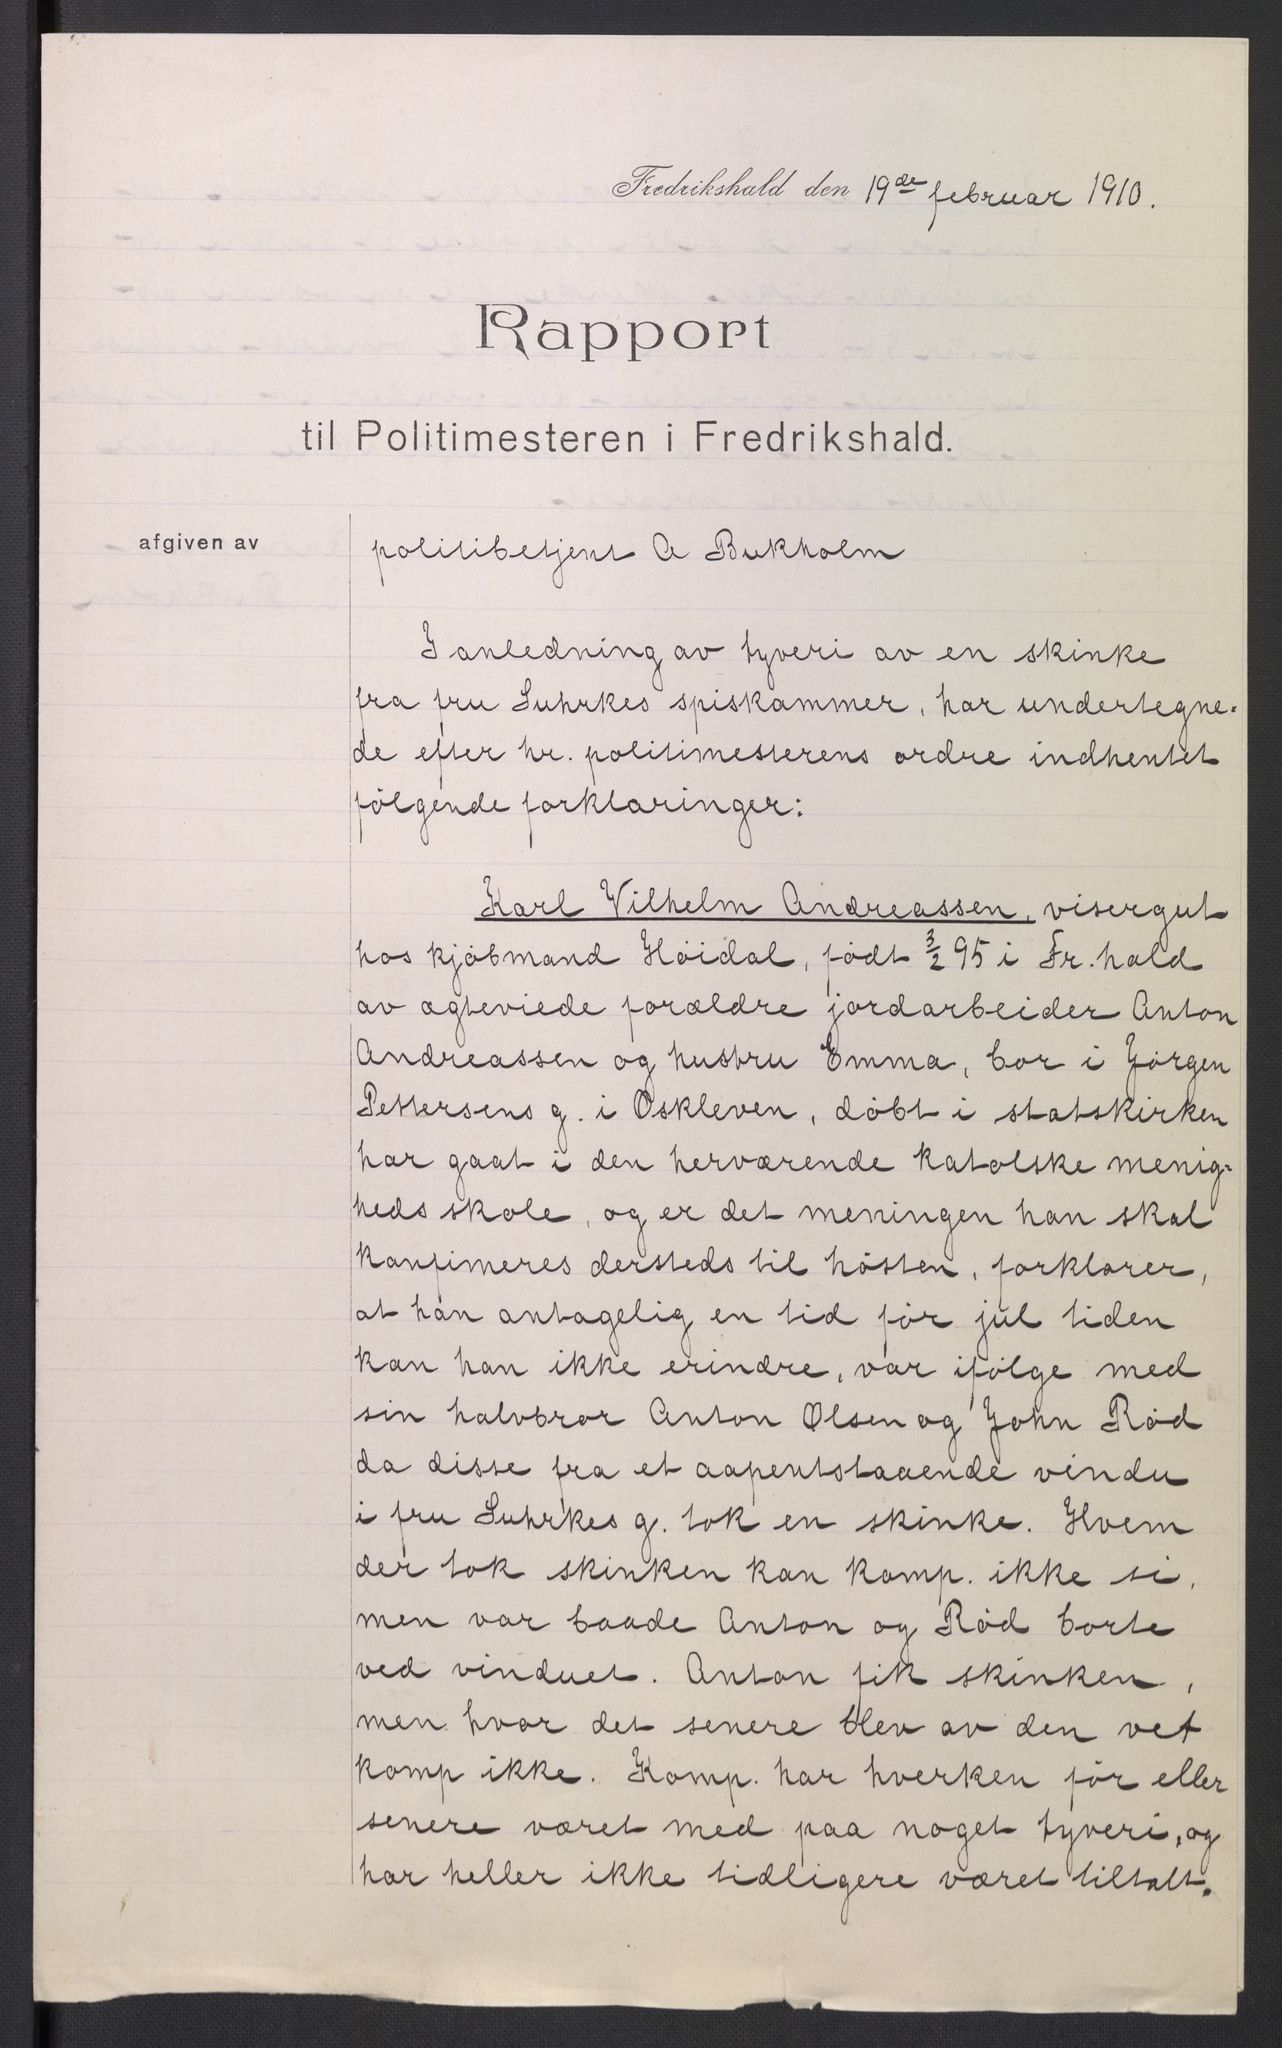 Fredrikshald den 19de februar 1910.
Rapport
til Politimesteren i Fredrikshald.
afgiven av
politibetjent A Bukholm
I anledning av tyveri av en skinke
fra fru Luhrkes spiskammer, har undertegne-
de efter hr. politimesterens ordre indhentet
følgende forklaringer:
Karl Vilhelm Andreassen, visergut
hos kjøbmand Høidal, født 3/2 95 i Fr.hald
av ægteviede forældre jordarbeider Anton
Andreassen og hustru Emma, bor i Jørgen
Pettersens g. i Oskleven, døbt i statskirken
har gaat i den herværende katolske menig-
heds skole, og er det meningen han skal
konfimeres dersteds til høsten, forklarer,
at han antagelig en tid før jul tiden
kan han ikke erindre, var ifølge med
sin halvbror Anton Olsen og John Rød
da disse fra et aapentstaaende vindu
i fru Luhrkes g. tok en skinke. Hvem
der tok skinken kan komp. ikke si,
men var baade Anton og Rød borte
ved vinduet. Anton fik skinken,
men hvor det senere blev av den vet
komp ikke. Komp. har hverken før eller
senere været med paa noget tyveri, og
har heller ikke tidligere været tiltalt.